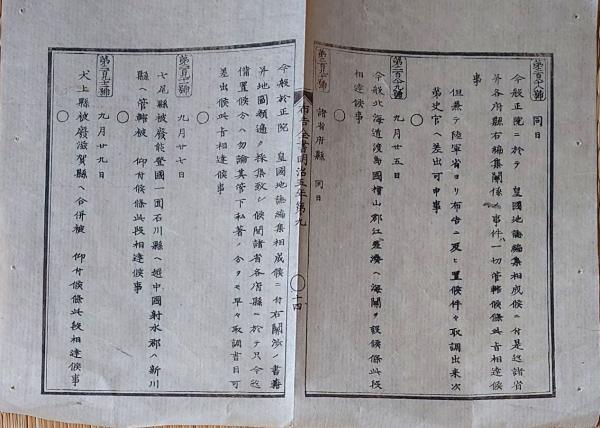 第二百八十八號 同日
今般正院ニ於テ 皇國地誌編集相成候ニ付是迄諸省
并各府縣右編集關係ノ事件一切管轄候條此旨相達候
事
但兼テ陸軍省ヨリ布告ニ及ヒ置候件々取調出来次
第史官ヘ差出可申事
○
第二百八十九號 九月廿五日
今般北海道渡島國檜山郡江差湊ヘ海關ヲ設候條此段
相達候事
○
第二百九十號 諸省府縣 同日
布告全書明治五年第九 ○ 十四
今般於正院 皇國地誌編集相成候ニ付右關渉ノ書籍
并地圖類遍ク採集致シ候間諸省各府縣ニ於テ只今迄
備置候分ハ勿論其管下私著ノ分タモ早々取調書目可
差出候此旨相達候事
○
第二百九十一號 九月廿七日
七尾縣被廢能登國一圓石川縣ヘ越中國射水郡ハ新川
縣ヘ管轄被 仰付候條此段相達候事
○
第二百九十二號 九月廿九日
犬上縣被廢滋賀縣ヘ合併被 仰付候條此段相達候事
○